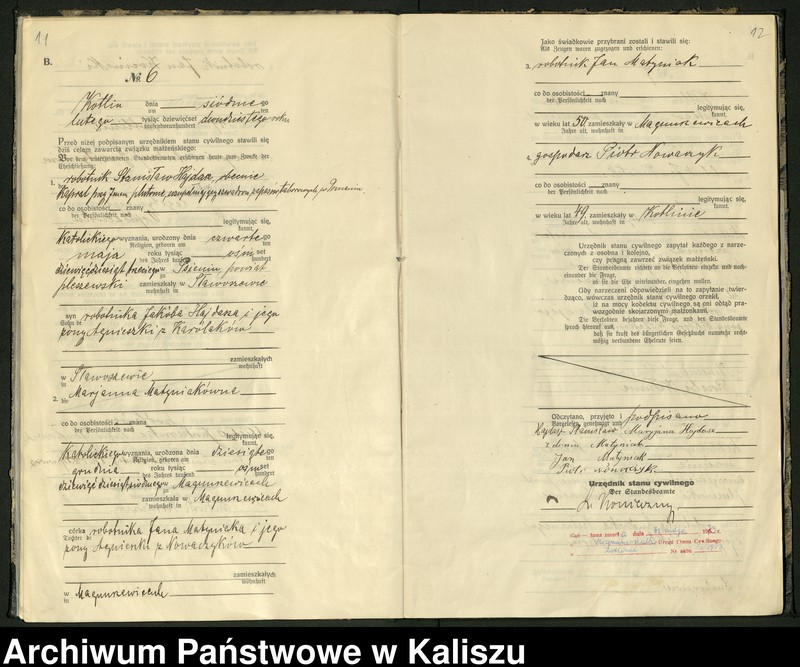 11
B.
№ 6
Kotlin dnia siódmego
am ten
lutego tysiąc dziewięćset dwudziestego roku
tausendneunhundert
Przed niżej podpisanym urzędnikiem stanu cywilnego stawili się
dziś celem zawarcia związku małżeńskiego:
Vor dem unterzeichneten Standesbeamten erschienen heute zum Zwecke der
Eheschließung:
1. robotnik Stanisław Hajdasz, obecnie
Kapral przy
co do osobistości znany
der Persönlichkeit nach
legitymując się,
kannt,
Katolickiego wyznania, urodzony dnia czwartego
Religion, geboren am ten
maja roku tysiąc ośmset
des Jahres tausend hundert
dziewięćdziesiąt trzeciego w powiat
zu
pleszewski zamieszkały w Sławoszewie
wohnhaft in
syn robotnika Jakóba Hajdasza i jego
Sohn des
żony Agnieszki z Karolaków
zamieszkałych
wohnhaft
w Sławoszewie
in
2. Marjanna Matyniakówna
die
co do osobistości znana
der Persönlichkeit nach
legitymując się,
kannt,
Katolickiego wyznania, urodzona dnia dziesiątego
Religion, geboren am ten
grudnia roku tysiąc ośmset
des Jahres tausend hundert
dziewięćdziesiąt siódmego w Magnuszewicach
zu
zamieszkała w Magnuszewicach
wohnhaft in
córka robotnika Jana Matyniaka i jego
Tochter des
żony Agnieszki z Nowaczyków
zamieszkałych
wohnhaft
w Magnuszewicach
in
12
Jako świadkowie przybrani zostali i stawili się:
Als Zeugen waren zugezogen und erschienen:
3. robotnik Jan Matyniak
co do osobistości znany
der Persönlichkeit nach
legitymując się,
kannt,
w wieku lat 50, zamieszkały w Magnuszewicach
Jahre alt, wohnhaft in
4. gospodarz Piotr Nowaczyk
co do osobistości znany
der Persönlichkeit nach
legitymując się,
kannt,
w wieku lat 49, zamieszkały w Kotlinie
Jahre alt, wohnhaft in
Urzędnik stanu cywilnego zapytał każdego z narze-
czonych z osobna i kolejno,
czy pragną zawrzeć związek małżeński.
Der Standesbeamte richtete an die Verlobten einzeln und nach-
einander die Frage,
ob sie die Ehe miteinander eingehen wollen.
Gdy narzeczeni odpowiedzieli na to zapytanie twier-
dząco, wówczas urzędnik stanu cywilnego orzekł,
iż na mocy kodeksu cywilnego są oni odtąd pra-
wozgodnie skojarzonymi małżonkami.
Die Verlobten bejahten diese Frage, und der Standesbeamte
sprach hierauf aus,
daß sie kraft des bürgerlichen Gesetzbuchs nunmehr recht-
mäßig verbundene Eheleute seien.
Odczytano, przyjęto i podpisano
Vorgelesen, genehmigt und
Hajdasz Stanisław Maryjana Hajdasz
z domu Matyniak
Jan Matyniak
Piotr Nowaczyk
Urzędnik stanu cywilnego
Der Standesbeamte
Konieczny
żona zmarła dnia
Urząd Stanu Cywilnego
Nr aktu
Archiwum Państwowe w Kaliszu